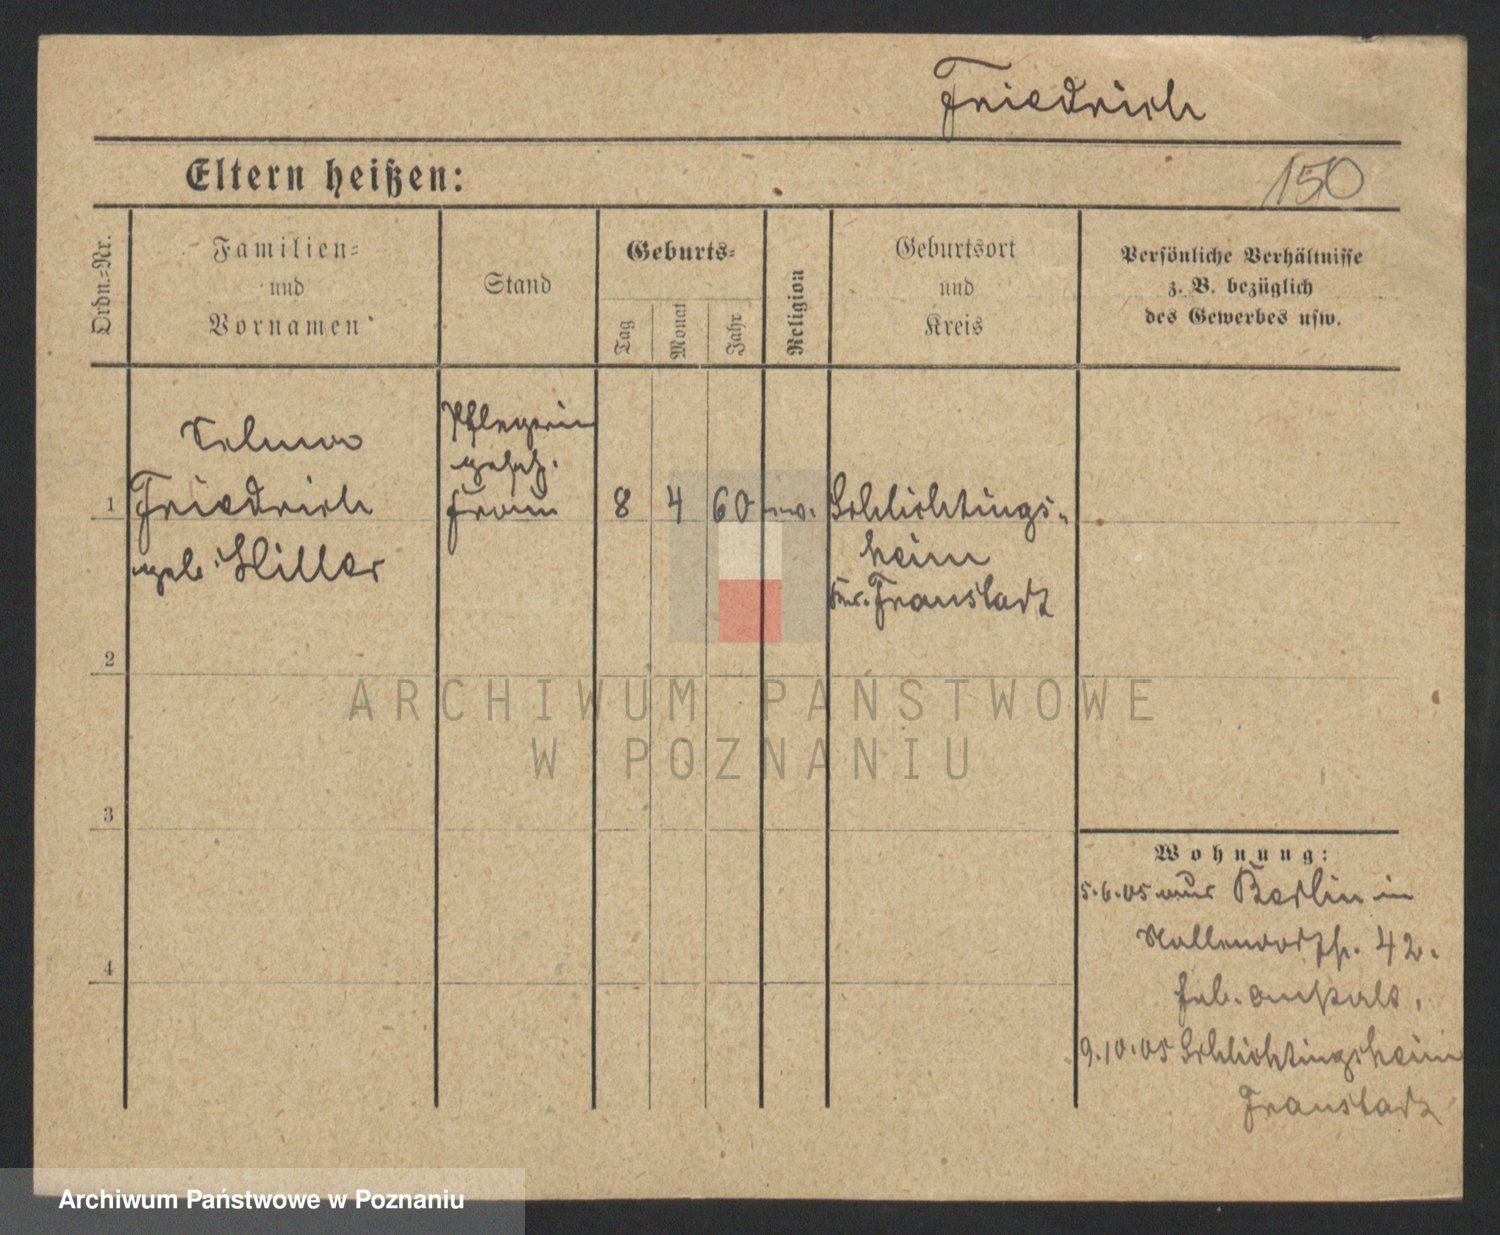 Friedrich
Eltern heißen:
150
Ordn.-Nr.
Familien-
und
Vornamen
Stand
Geburts-
Tag
Monat
Jahr
Religion
Geburtsort
und
Kreis
Persönliche Verhältnisse
z. B. bezüglich
des Gewerbes usw.
1
Selma
Friedrich
geb. Hiller
Pflegerin
gesch.
Frau
8
4
60
ev.
Schlichtings-
heim
Kr. Fraustadt
2
3
4
Wohnung:
5.6.05 aus Berlin in
42.
9.10.05 Schlichtingsheim
Fraustadt
ARCHIWUM PAŃSTWOWE
W POZNANIU
Archiwum Państwowe w Poznaniu